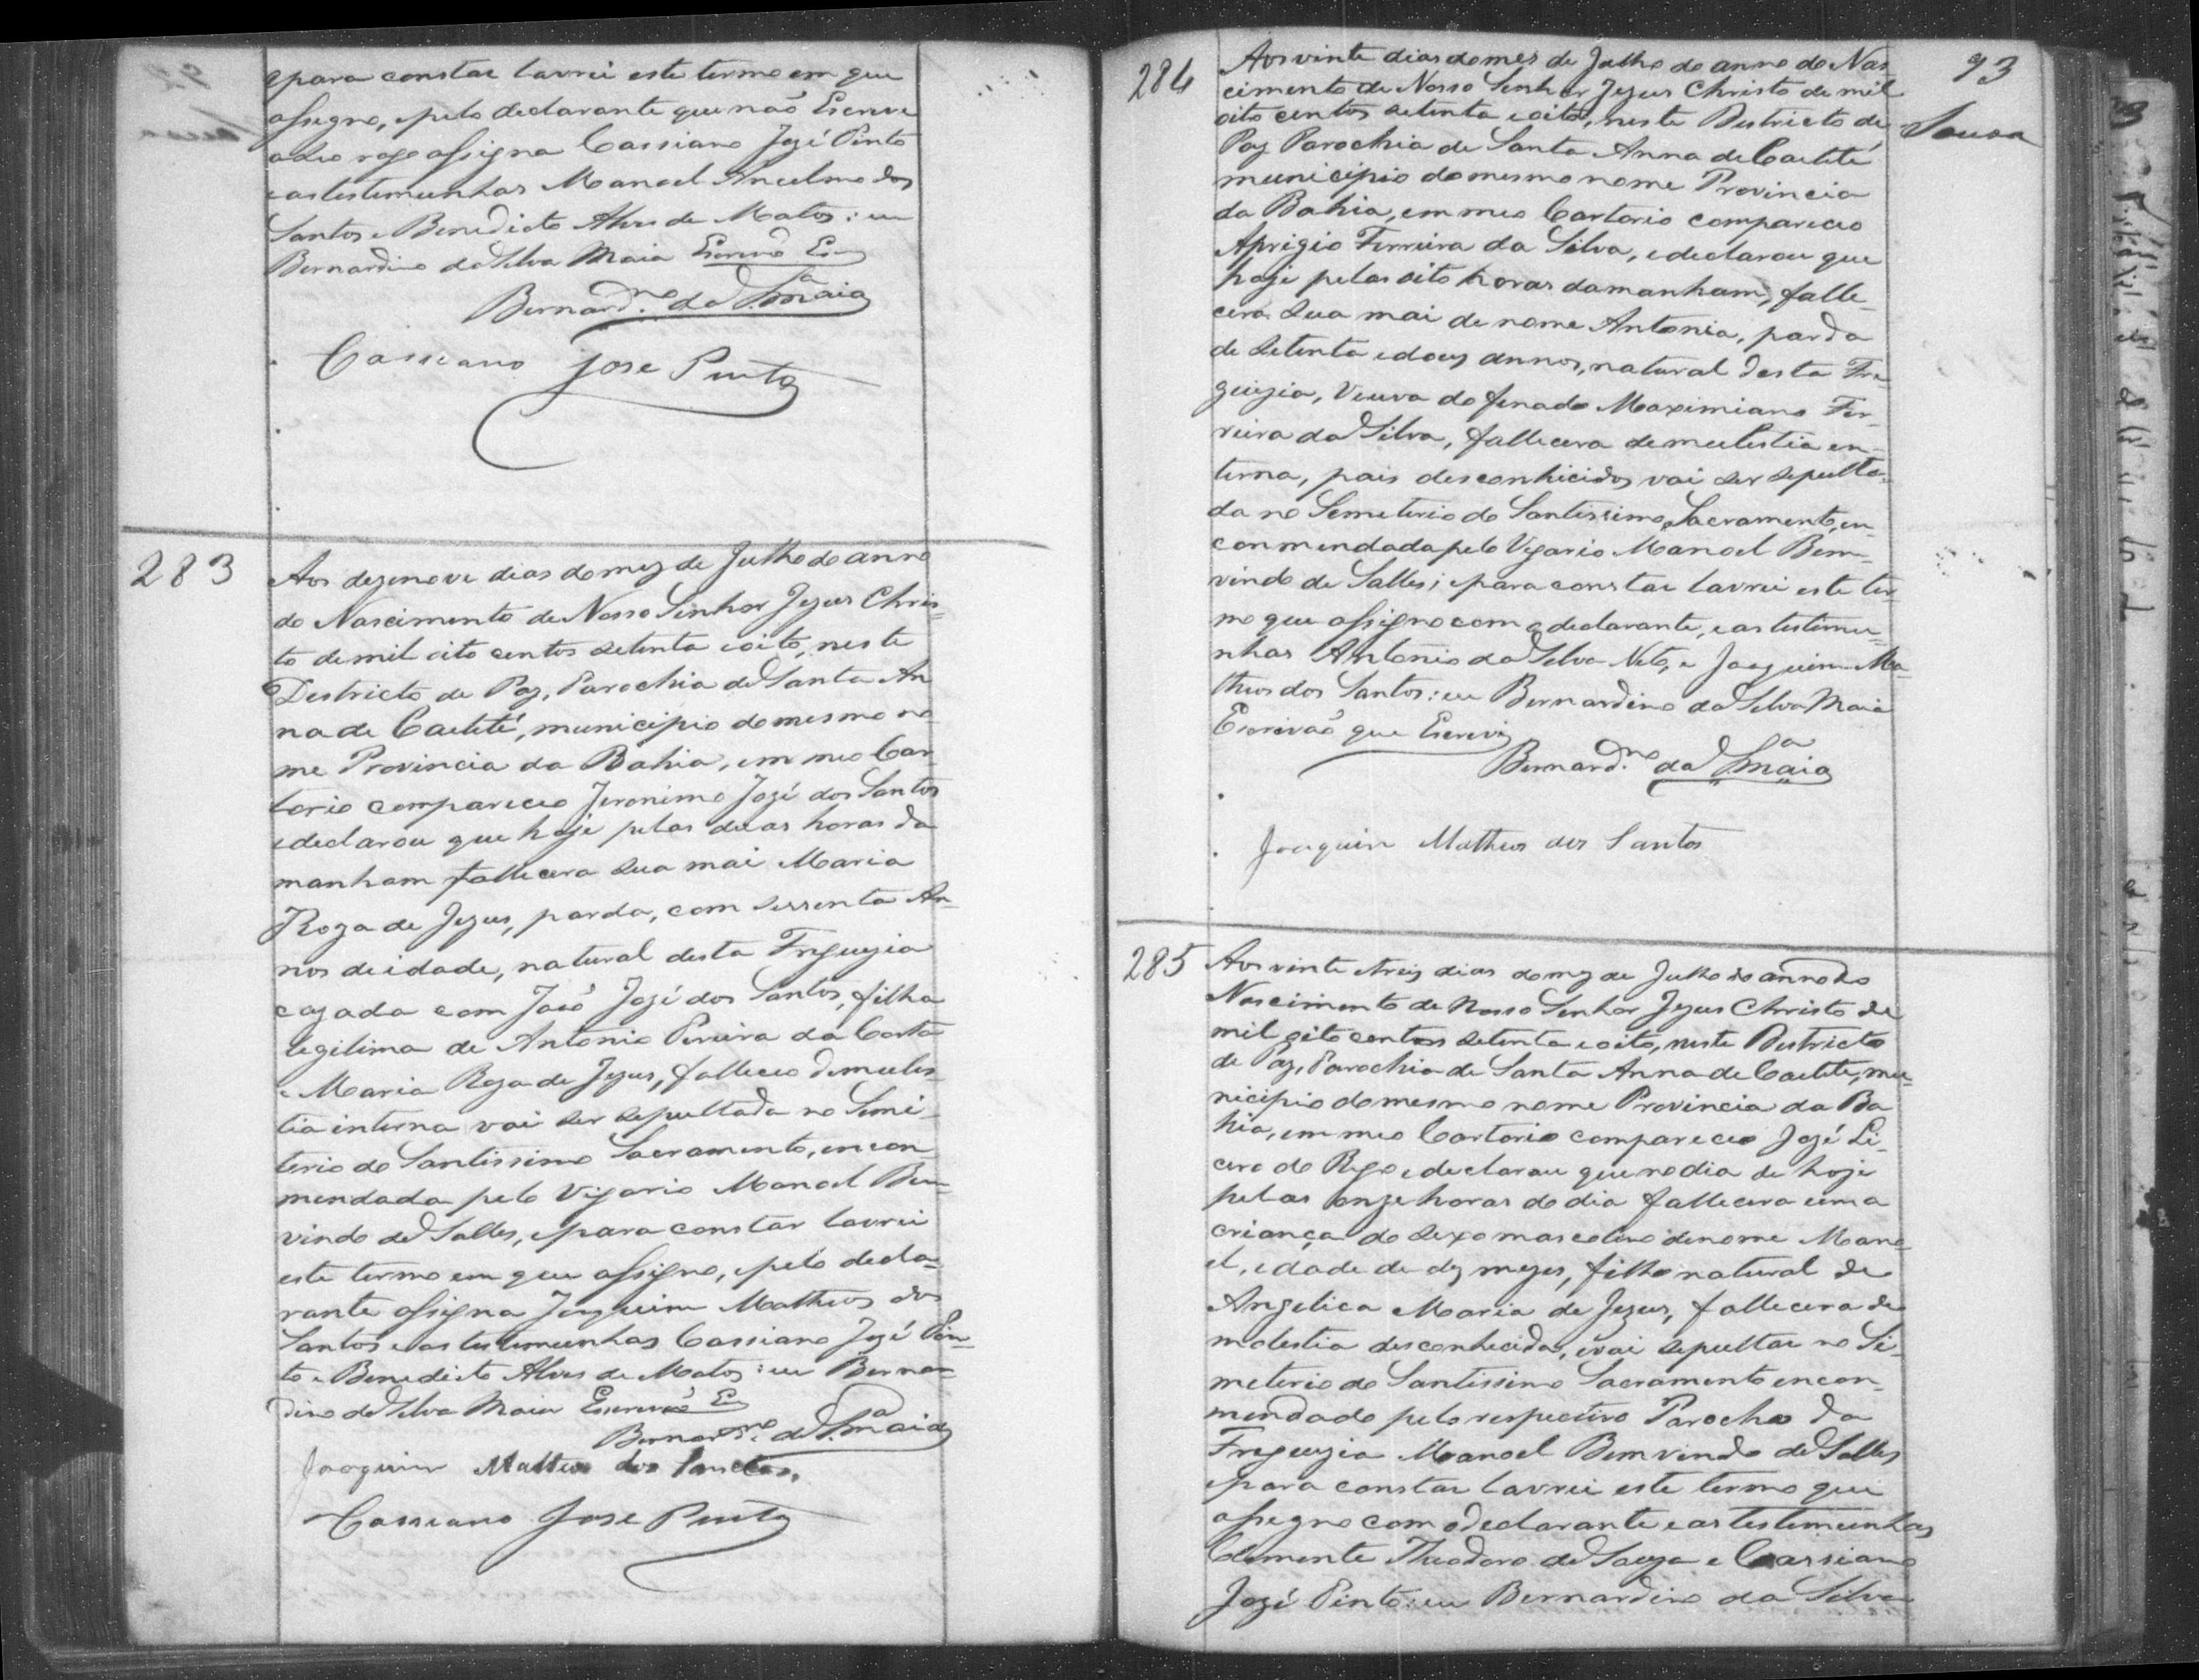 epara constar lavrei este termo em que
assigno, epelo declarante que não Escreve
aseo rogo assigna Cassiano Jozé Pinto
eastestemunhas Manoel Ancelmo dos
Santos e Benedicto Alves de Matos: eu
Bernardino da Silva Maia Escrivão
Bernard.no da S.a Maia
Cassiano Jose Pinto
283
Aos dezenove dias domez de Julho do anno
do Nascimento de Nosso Senhor Jezus Chris-
to demil oito centos setenta eoito, neste
Destricto de Paz, Parochia de Santa An
na de Caetité, municipio domesmo no
me Provincia da Bahia, em meo Car
torio compareceo Jeronimo Jozé dos Santos
edeclarou que hoje pelas duas horas da
manham fallecera sua mai Maria
Roza de Jezus, parda, com sessenta An-
nos deidade, natural desta Freguezia
cazada com João Jozé dos Santos, filha
legitima de Antonio Pereira da Costa
e Maria Roza de Jezus, falleceo demules
tia interna vai ser sepultada no Semi
terio do Santissimo Sacramento, encon
mendada pelo Vigario Manoel Bem
vindo de Salles, epara constar lavrei
este termo em que assigno, epelo decla-
rante assigna Joaquim Matheus dos
Santos eas testemunhas Cassiano Jozé Pin-
to e Benedicto Alves de Matos: eu Bernar
dino da Silva Maia Escrivão
Bernard.no da S.a Maia
Joaquim Matheus dos Santos
Cassiano Jose Pinto
93
Sousa
284
Aos vinte dias domes de Julho do anno do Nas
cimento de Nosso Senhor Jezus Christo de mil
oito centos setenta eoito, neste Destricto de
Paz Parochia de Santa Anna de Caetité
municipio domesmo nome Provincia
da Bahia, em meo Cartorio compareceo
Aprigio Ferreira da Silva, edeclarou que
hoje pelas oito horas damanham, falle-
cera sua mai de nome Antonia, parda
de setenta edous annos, natural desta Fre
guezia, Veuva do finado Maximiano Fer-
reira da Silva, fallecera demulestia en-
terna, pais desconhicidos vai ser sepulta-
da no Semeterio do Santissimo Sacramento, en
conmendada pelo Vigario Manoel Bem-
vindo de Salles; epara constar lavrei este ter-
mo que assigno com o declarante, eas testemu-
nhas Antonio da Silva Neto, e Joaquim Ma-
theus dos Santos: eu Bernardino da Silva Maia
Escrivão que Escrevi
Bernard.no da S.a Maia
Joaquim Matheus dos Santos
285
Aos vinte etreis dias domez de Julho do anno do
Nascimento de Nosso Senhor Jezus Christo de
mil oito centos setenta eoito, neste Destricto
de Paz, Parochia de Santa Anna de Caetité, mu-
nicipio domesmo nome Provincia da Ba
hia, em meo Cartorio compareceo Jozé Li-
cero do Rego edeclarou que no dia de hoje
pelas onze horas do dia fallecera uma
criança do sexo mascolino denome Mano-
el, edade de dez mezes, filho natural de
Angelica Maria de Jezus, fallecera de
molestia desconhecida, evai sepultar no Si-
meterio do Santissimo Sacramento encon
mendado pelo respectivo Parocho da
Freguezia Manoel Bemvindo de Salles
epara constar lavrei este termo que
assegno com odeclarante eas testemunhas
Clemente Theodoro de Souza e Cassiano
Jozé Pinto: eu Bernardino da Silva